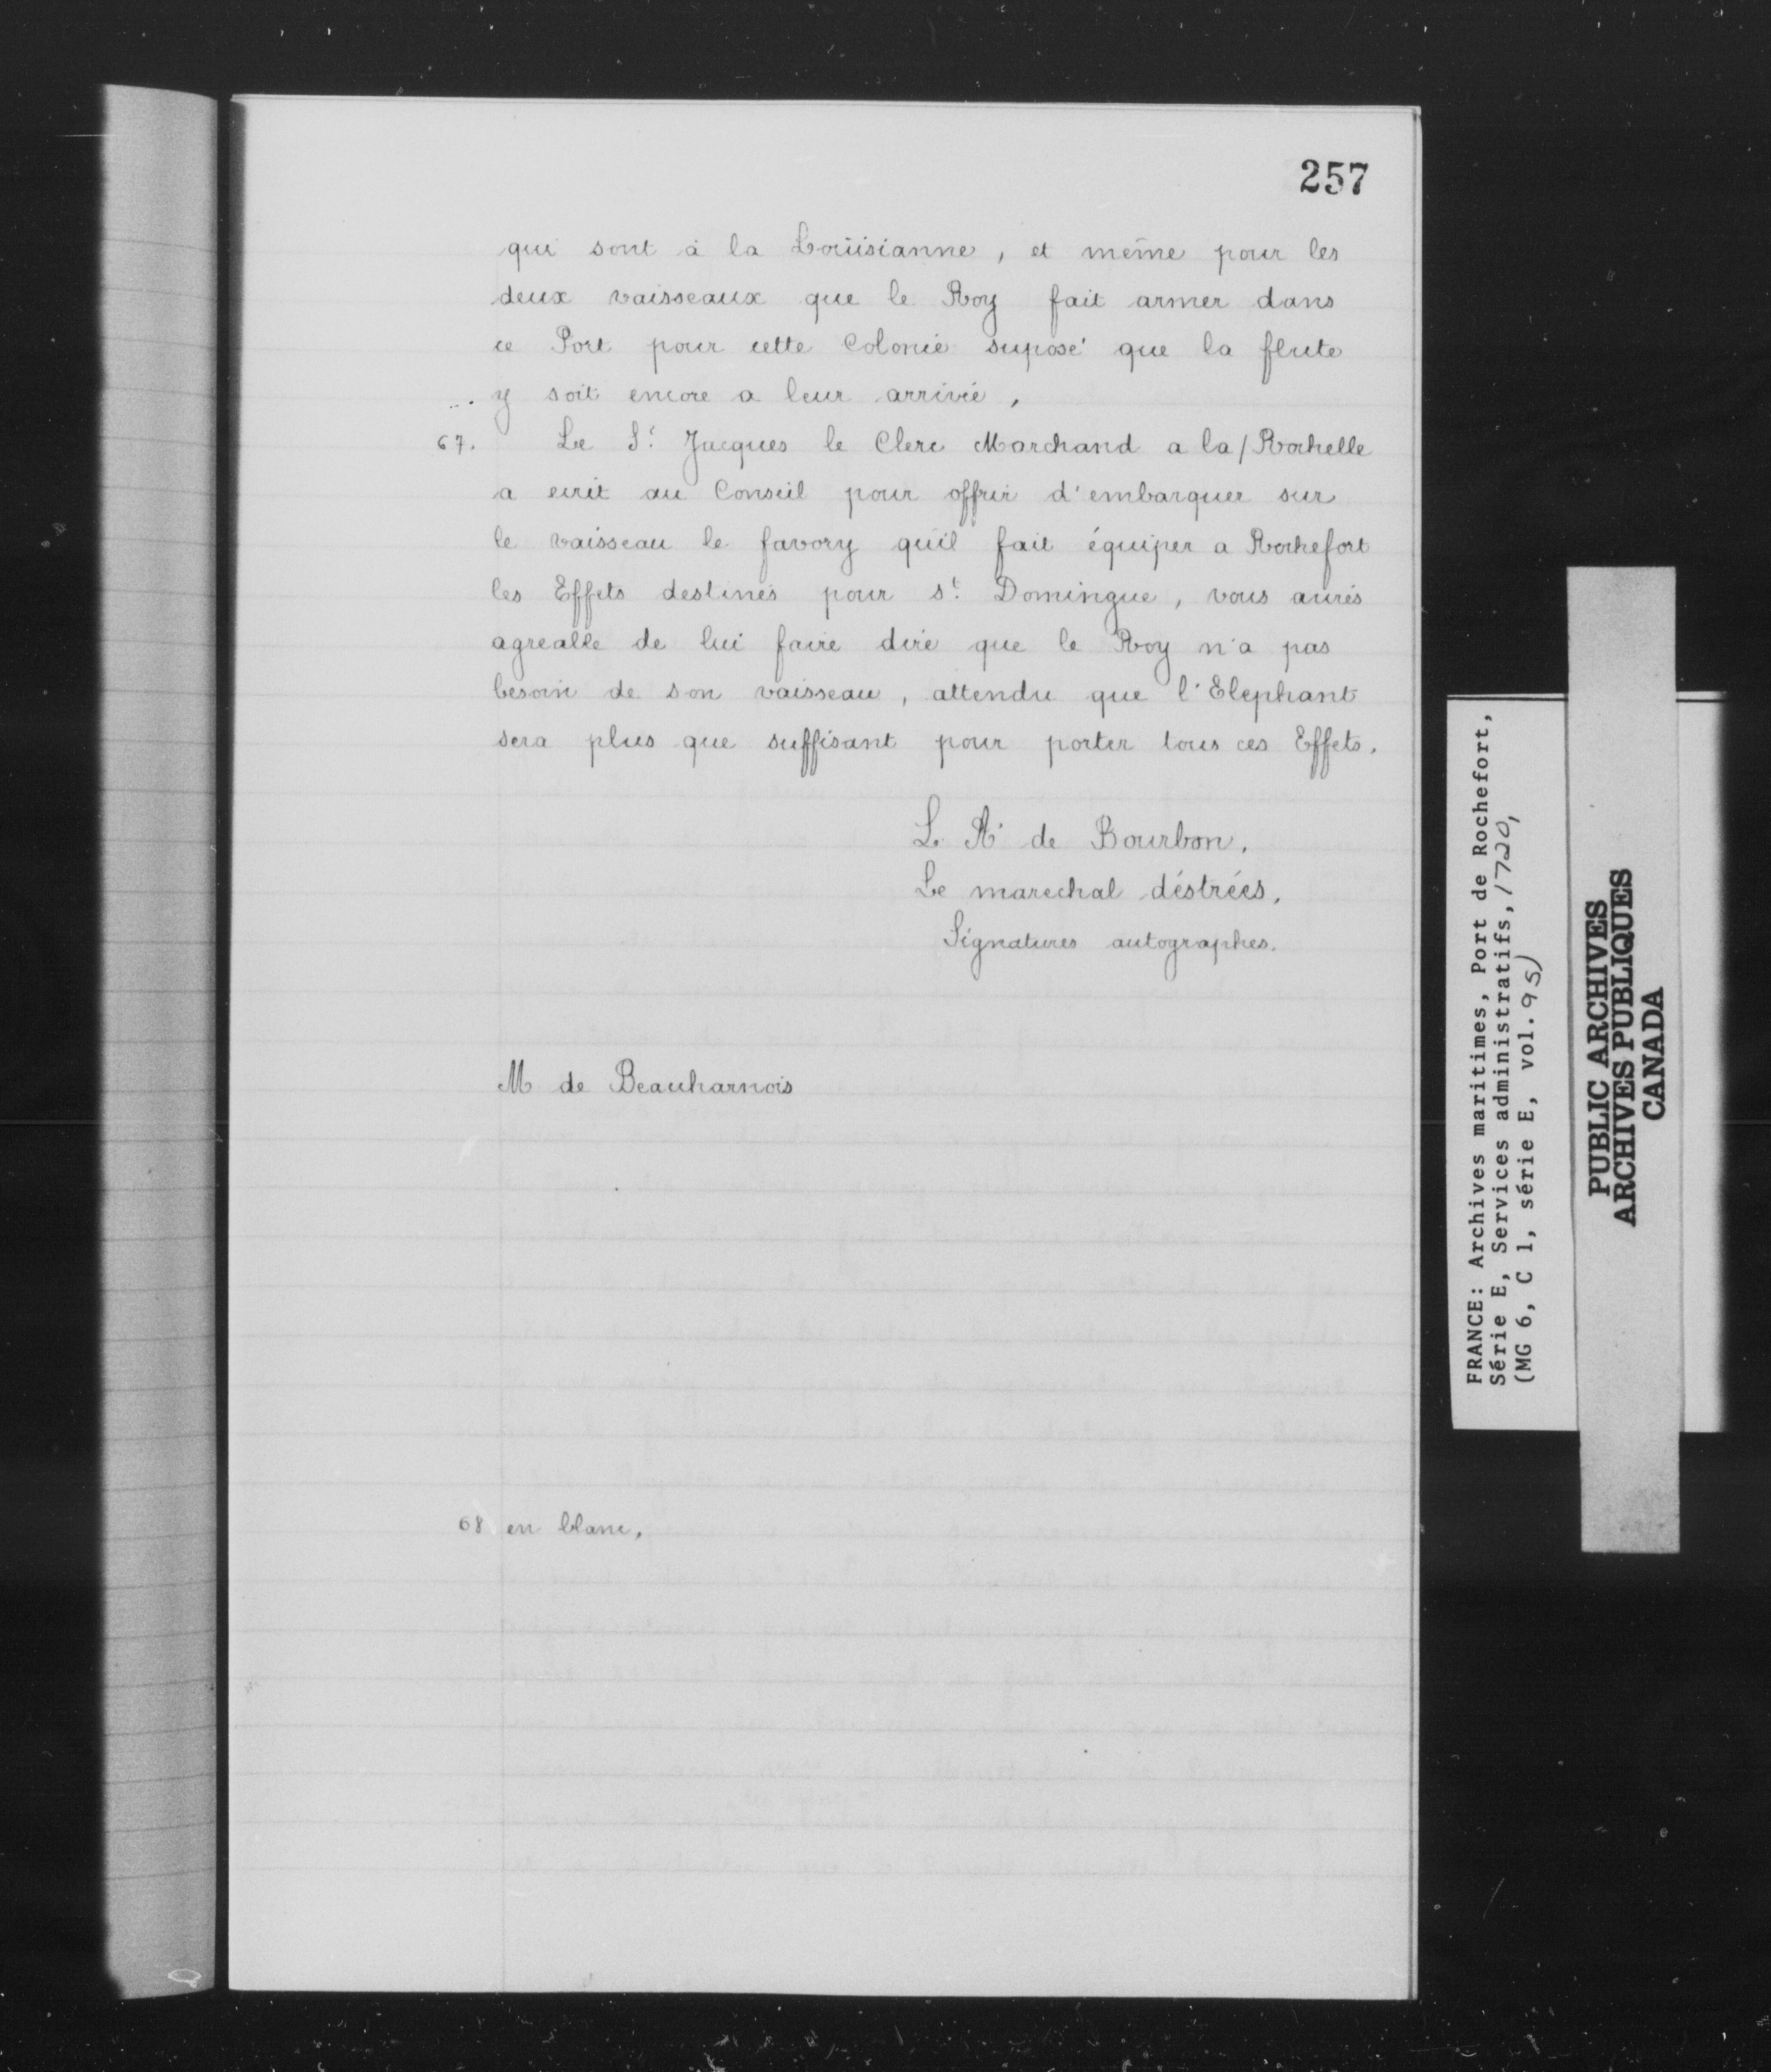 257
qui sont à la Loüisianne, et même pour les
deux vaisseaux que le Roy fait armer dans
ce Port pour cette Colonie suposé que la flute
y soit encore a leur arrivée,
67. Le S.r Jacques le Clerc Marchand a la / Rochelle
a ecrit au Conseil pour offrir d'embarquer sur
le vaisseau le favory quil fait équiper a Rochefort
les Effets destinés pour s.t Domingue, vous aurés
agreable de lui faire dire que le Roy n'a pas
besoin de son vaisseau, attendu que l'Elephant
sera plus que suffisant pour porter tous ces Effets.
L. A. de Bourbon.
Le marechal déstrées.
Signatures autographes.
M de Beauharnois
68 en blanc.
FRANCE: Archives maritimes, Port de Rochefort,
Série E, Services administratifs, 1720,
(MG 6, C 1, série E, vol. 95)
PUBLIC ARCHIVES
ARCHIVES PUBLIQUES
CANADA